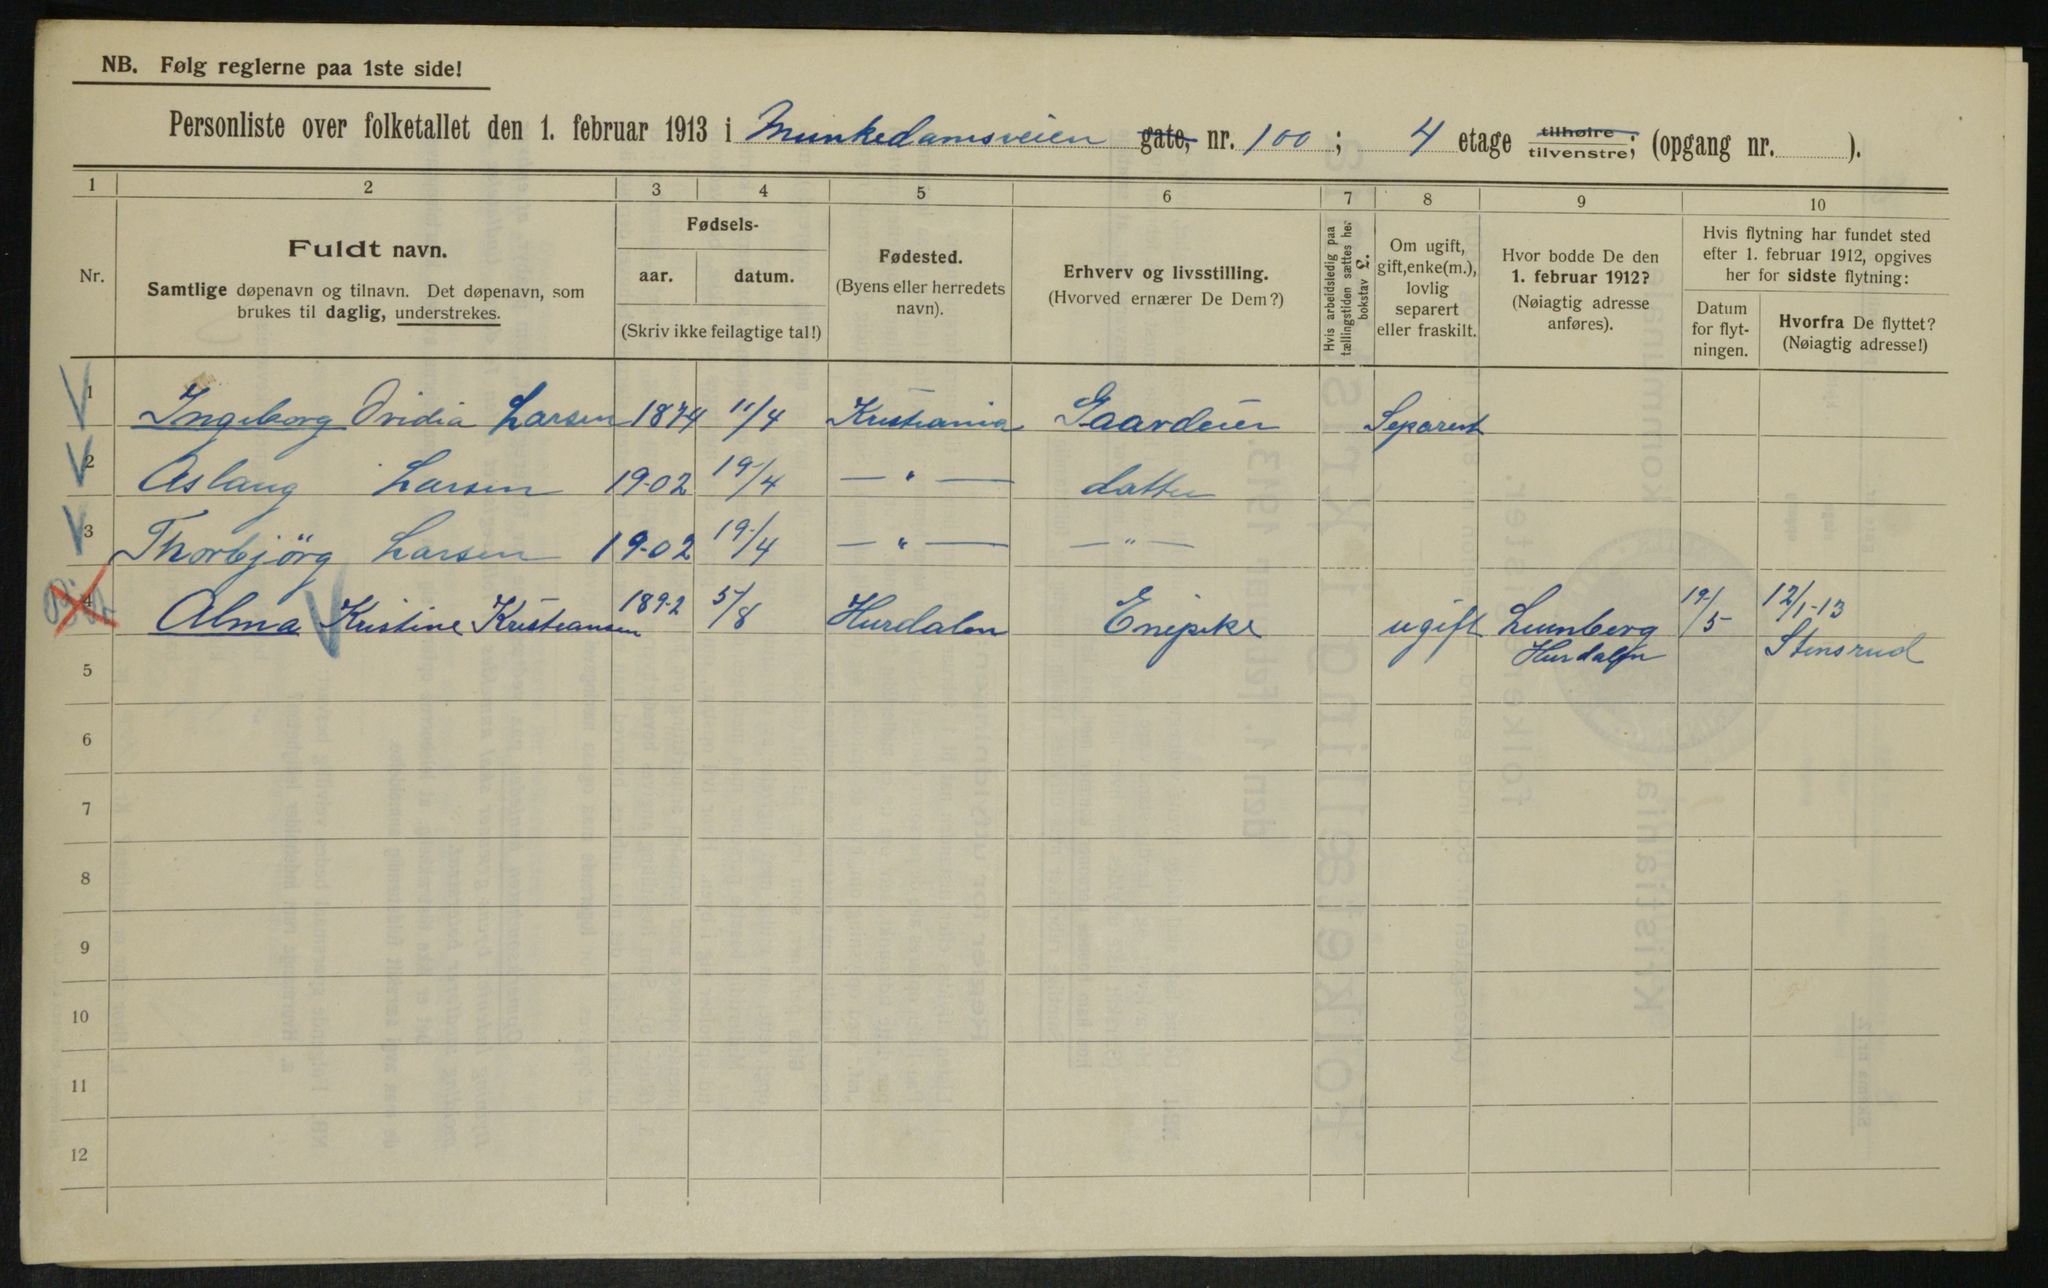 NB. Følg reglerne paa 1ste side!
Personliste over folketallet den 1. februar 1913 i Munkedamsveien gate, nr. 100; 4 etage tilhøire tilvenstre; (opgang nr. ).
1 2 3 4 5 6 7 8 9 10
Nr.
Fuldt navn.
Samtlige døpenavn og tilnavn. Det døpenavn, som
brukes til daglig, understrekes.
Fødsels-
aar. datum.
(Skriv ikke feilagtige tal!)
Fødested.
(Byens eller herredets
navn).
Erhverv og livsstilling.
(Hvorved ernærer De Dem?)
Hvis arbeidsledig paa
tællingstiden sættes her
bokstav g.
Om ugift,
gift, enke(m.),
lovlig
separert
eller fraskilt.
Hvor bodde De den
1. februar 1912?
(Nøiagtig adresse
anføres).
Hvis flytning har fundet sted
efter 1. februar 1912, opgives
her for sidste flytning:
Datum
for flyt-
ningen.
Hvorfra De flyttet?
(Nøiagtig adresse!)
1 Ingeborg Ovidia Larsen 1874 11/4 Kristiania Gaardeier Separert
2 Aslaug Larsen 1902 19/4 — " — datter
3 Thorbjörg Larsen 1902 19/4 — " — — " —
4 Alma Kristine Kristiansen 1892 5/8 Hurdalen Enepike ugift Lunnberg 19/5 12/1-13
5 Hurdalen Stensrud
6
7
8
9
10
11
12